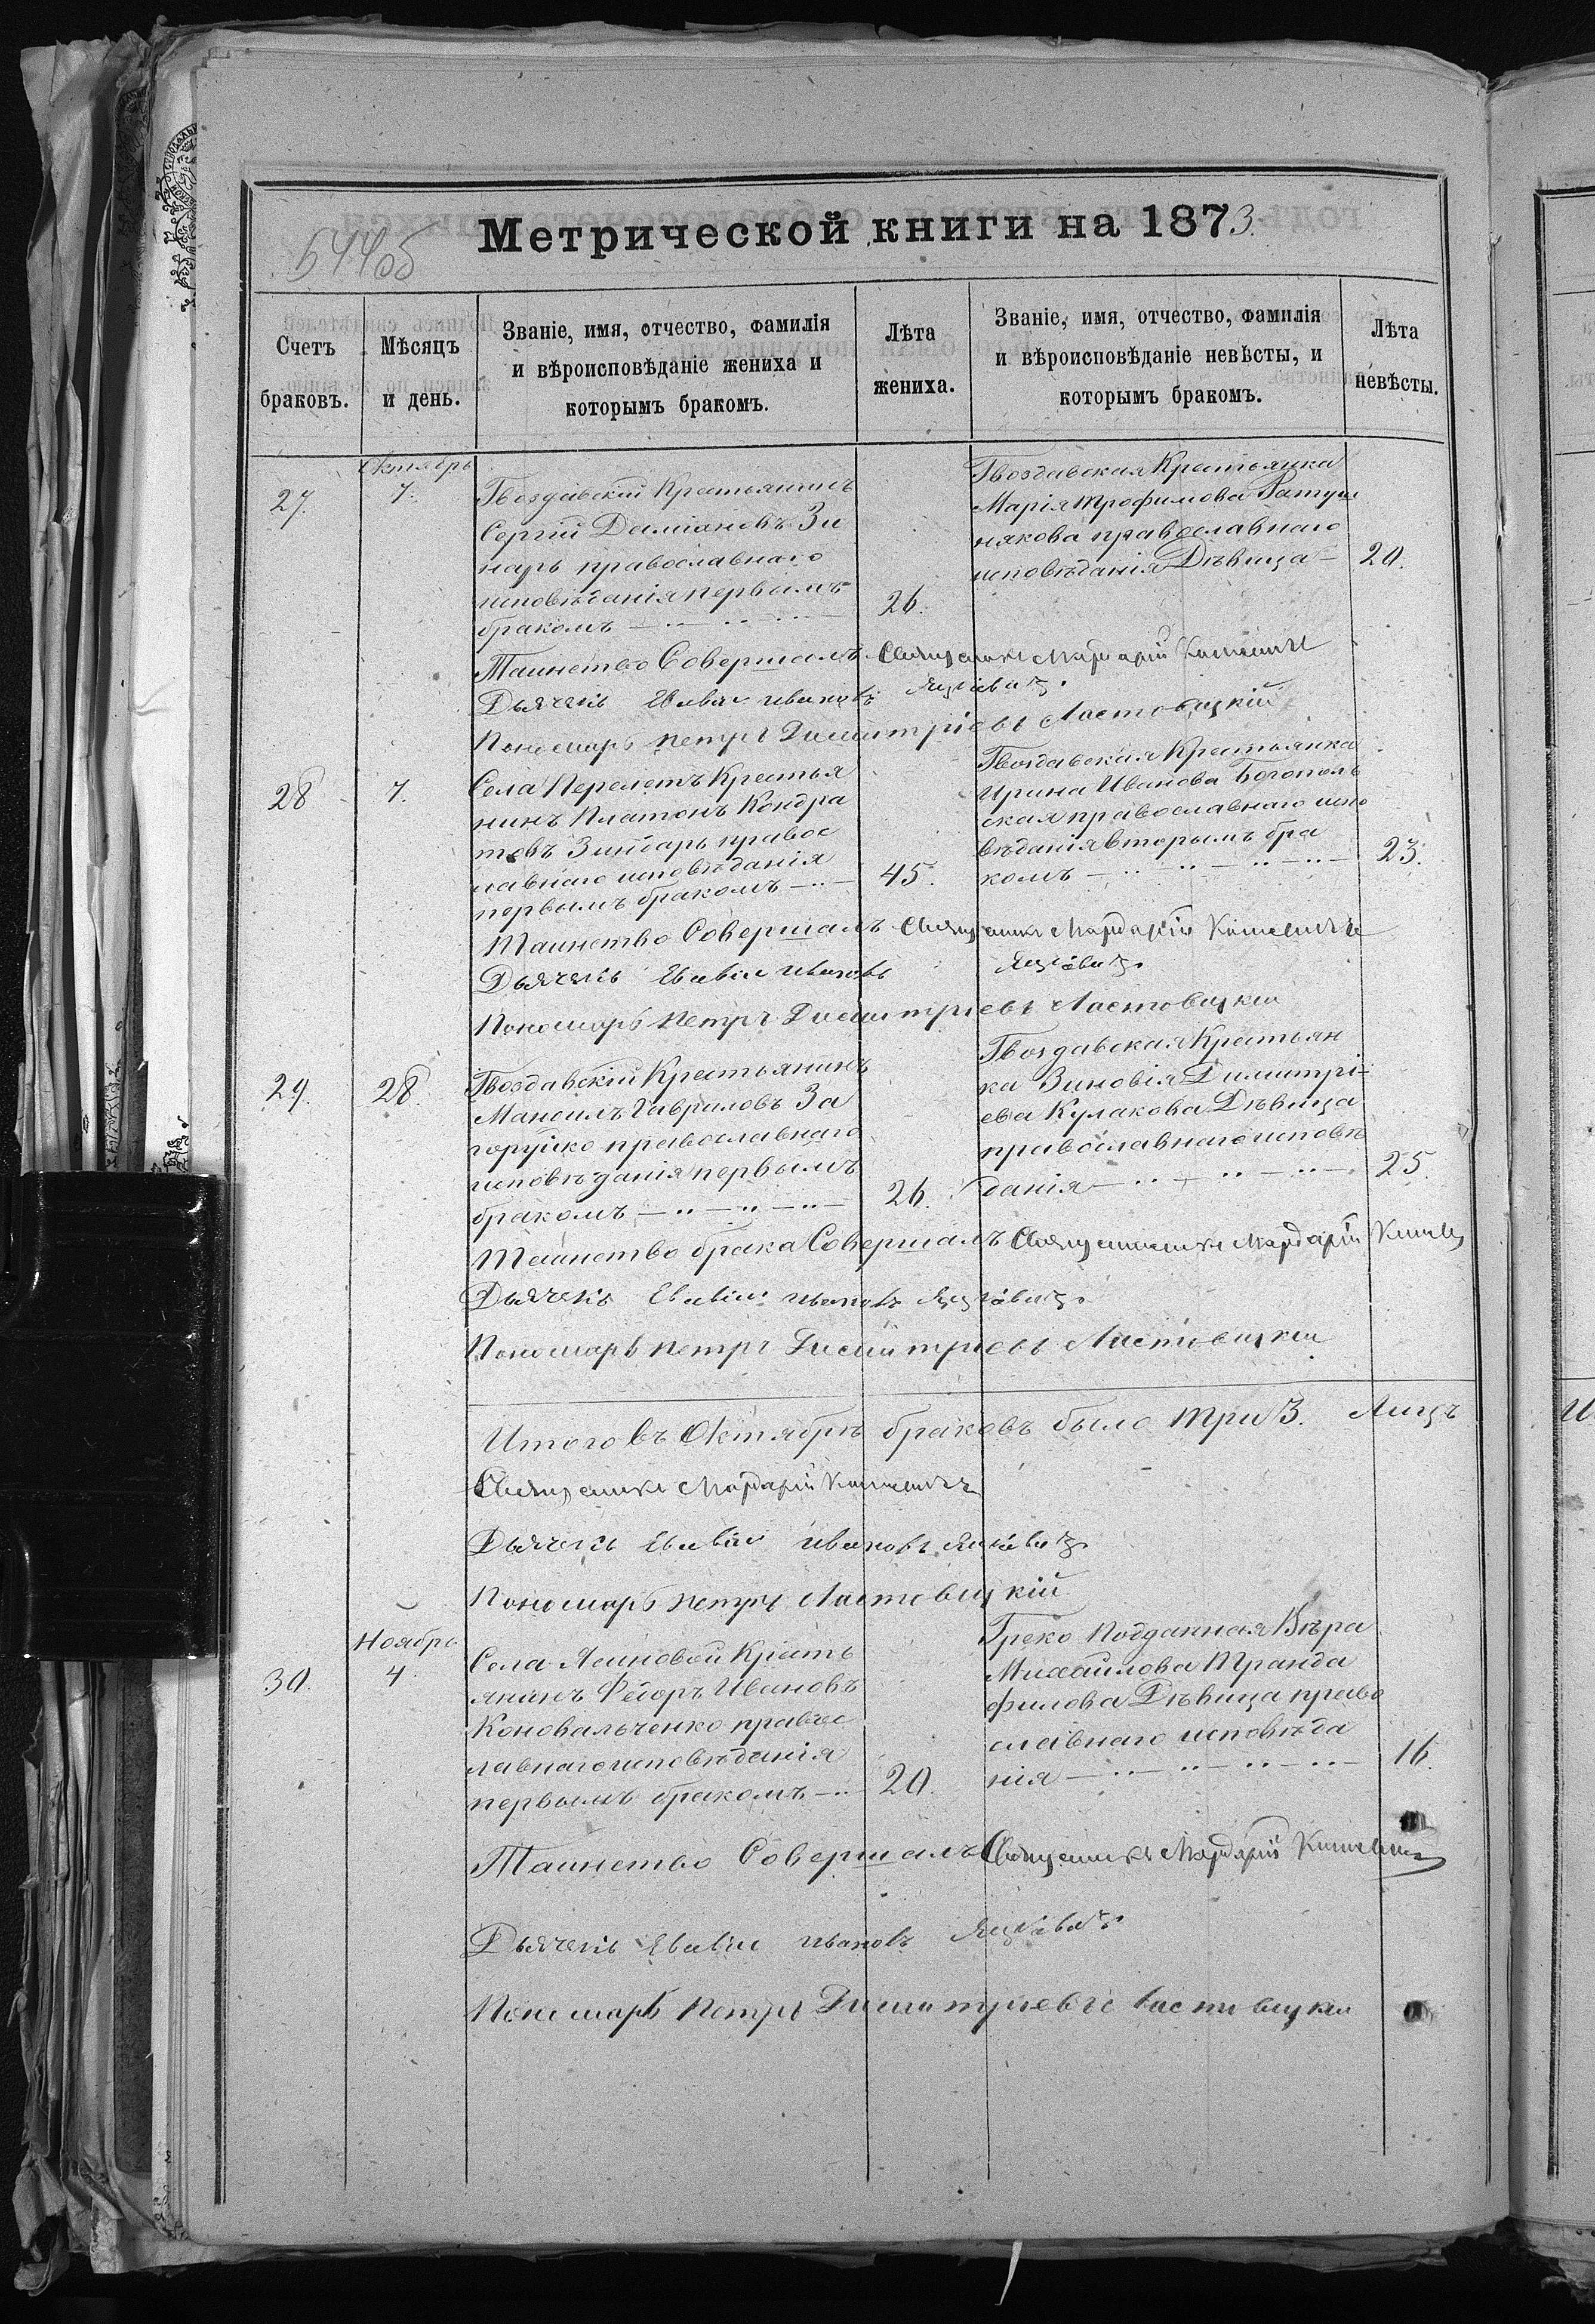 Метрической книги на 1873.
544об
Счетъ браковъ.
Мѣсяцъ и день.
Званіе, имя, отчество, фамилія
и вѣроисповѣданіе жениха и
которымъ бракомъ.
Лѣта жениха.
Званіе, имя, отчество, фамилія
и вѣроисповѣданіе невѣсты, и
которымъ бракомъ.
Лѣта невѣсты.
Октябрь
27.
7.
Гвоздавскій Крестьянинъ
Сергій Даміановъ Зи
нарь православнаго
исповѣданія первымъ
бракомъ
26.
Гвоздавская Крестьянка
Марія Трофимова Ратуш
някова православнаго
исповѣданія Дѣвица
20.
Таинство Совершалъ Священникъ Мардарій
Дьячекъ Иванов
Пономарь Петръ Димитріевъ Ластовецкій
28
7.
Села Перелетъ Крестья
нинъ Платонъ Кондра
товъ Зинбарь правос
лавнаго исповѣданія
первымъ бракомъ
45.
Гвоздавская Крестьянка
Ирина Иванова Богополь
ская православнаго испо
вѣданія вторымъ бра
комъ
23.
Таинство Совершалъ Священникъ Мардарій
Дьячекъ Иванов
Пономарь Петръ Димитріевъ Ластовецкій
29.
28.
Гвоздавскій Крестьянинъ
Мануилъ Гавриловъ За
горуйко православнаго
исповѣданія первымъ
бракомъ
26.
Гвоздавская Крестьян
ка Зиновія Димитрі-
ева Кулакова Дѣвица
православнаго исповѣ
данія
25.
Таинство брака Совершалъ Священникъ Мардарій
Дьячекъ Иванов
Пономарь Петръ Димитріевъ Ластовецкій
Итого въ Октябрѣ браковъ было три 3. Лицъ
Священникъ Мардарій
Дьячекъ Иванов
Пономарь Петръ Ластовецкій
Ноябрь
30.
4.
Села Ясиновой Кресть
янинъ Феодоръ Ивановъ
Коновальченко правос
лавнаго исповѣданія
первымъ бракомъ
20.
Греко Подданная Вѣра
Михаилова Транда
филова Дѣвица право
славнаго исповѣда
нія
16.
Таинство Совершалъ Священникъ Мардарій
Дьячекъ Иванов
Пономарь Петръ Димитріевъ Ластовецкій